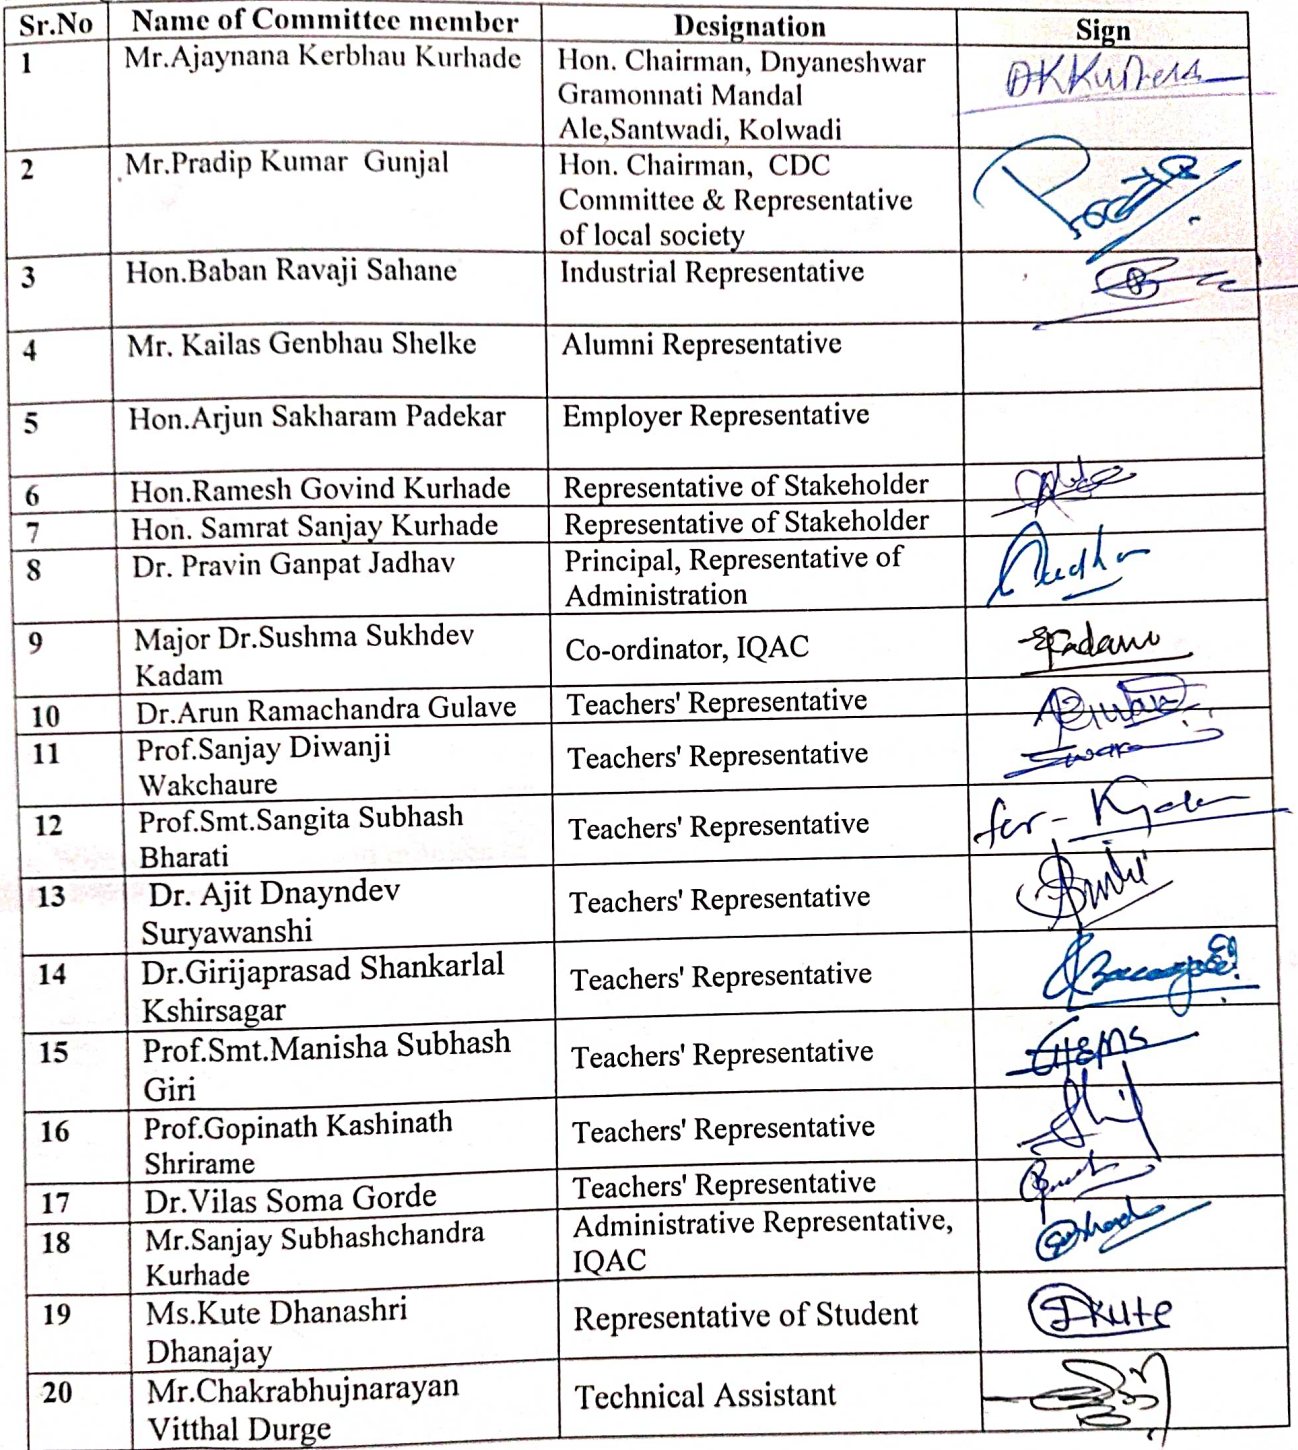 Sr.No Name of Committee member Designation Sign
1 Mr.Ajaynana Kerbhau Kurhade Hon. Chairman, Dnyaneshwar
Gramonnati Mandal
Ale,Santwadi, Kolwadi
2 Mr.Pradip Kumar Gunjal Hon. Chairman, CDC
Committee & Representative
of local society
3 Hon.Baban Ravaji Sahane Industrial Representative
4 Mr. Kailas Genbhau Shelke Alumni Representative
5 Hon.Arjun Sakharam Padekar Employer Representative
6 Hon.Ramesh Govind Kurhade Representative of Stakeholder
7 Hon. Samrat Sanjay Kurhade Representative of Stakeholder
8 Dr. Pravin Ganpat Jadhav Principal, Representative of
Administration
9 Major Dr.Sushma Sukhdev
Kadam Co-ordinator, IQAC
10 Dr.Arun Ramachandra Gulave Teachers' Representative
11 Prof.Sanjay Diwanji
Wakchaure Teachers' Representative
12 Prof.Smt.Sangita Subhash
Bharati Teachers' Representative for-
13 Dr. Ajit Dnayndev
Suryawanshi Teachers' Representative
14 Dr.Girijaprasad Shankarlal
Kshirsagar Teachers' Representative
15 Prof.Smt.Manisha Subhash
Giri Teachers' Representative
16 Prof.Gopinath Kashinath
Shrirame Teachers' Representative
17 Dr.Vilas Soma Gorde Teachers' Representative
18 Mr.Sanjay Subhashchandra
Kurhade Administrative Representative,
IQAC
19 Ms.Kute Dhanashri
Dhanajay Representative of Student Dkute
20 Mr.Chakrabhujnarayan
Vitthal Durge Technical Assistant